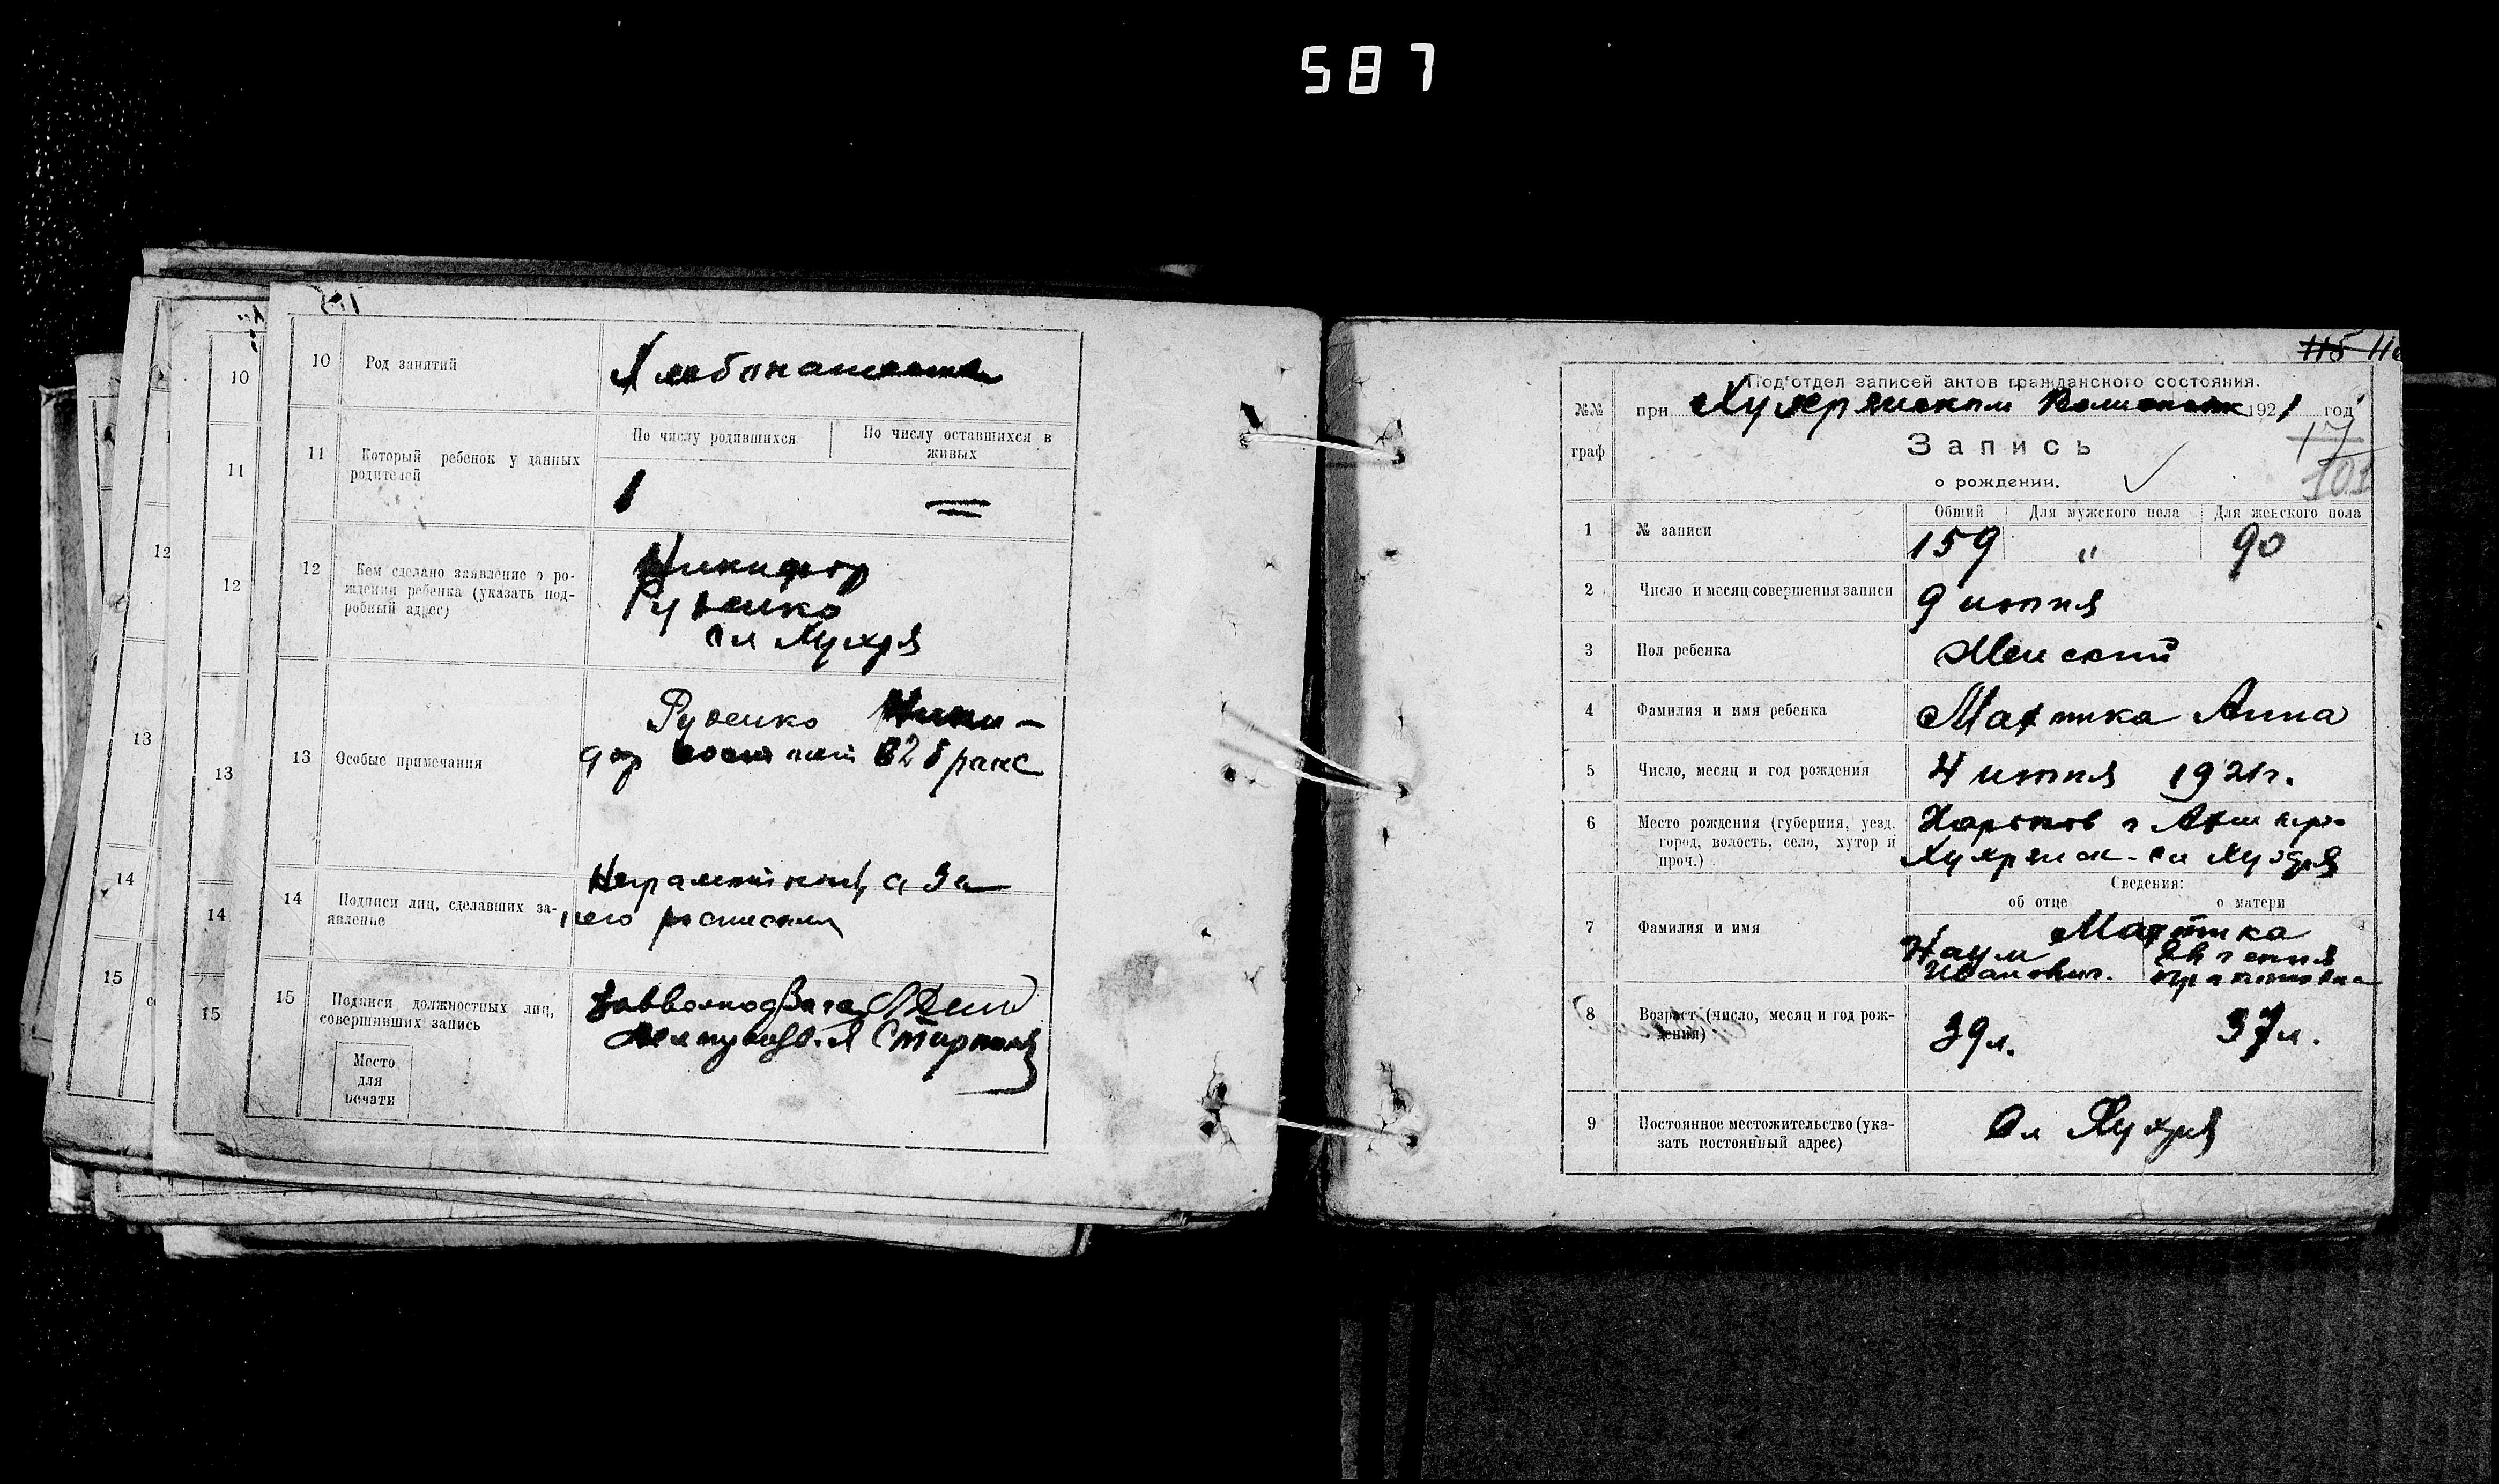 587
10 Род занятий
Хлебопашество
11 Который ребенок у данных родителей
По числу родившихся
По числу оставшихся в живых
1
=
12 Кем сделано заявление о рождении ребенка (указать подробный адрес)
Никифор
Руденко
сл Хухря
13 Особые примечания
Руденко Ники-
фор состоит в 2 браке
14 Подписи лиц, сделавших заявление
Неграмотный, а за
него росписали
15 Подписи должностных лиц, совершивших запись
Место
для
печати
10
11
12
13
14
15
12
13
14
15
115
Под'отдел записей актов гражданского состояния.
№№ граф
при Хухрянском 1921 год
17
101
Запись
о рождении.
Общий
Для мужского пола
Для женского пола
1 № записи
159 " 90
2 Число и месяц совершения записи
9 июня
3 Пол ребенка
Женский
4 Фамилия и имя ребенка
Анна
5 Число, месяц и год рождения
4 июня 1921г.
6 Место рождения (губерния, уезд, город, волость, село, хутор и проч.)
Харьков г
Хухрянск- сл Хухря
Сведения:
об отце
о матери
7 Фамилия и имя
Наум
Иванович.
Евгения
8 Возраст (число, месяц и год рождения)
39л. 37л.
9 Постоянное местожительство (указать постоянный адрес)
Сл Хухря